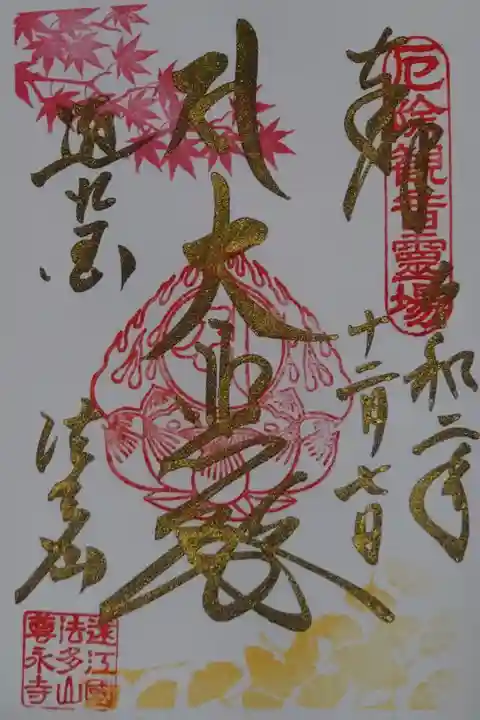 奉拝
厄除觀音靈場
令和二年
十二月七日
大悲殿
法多山
遠江國
法多山
尊永寺